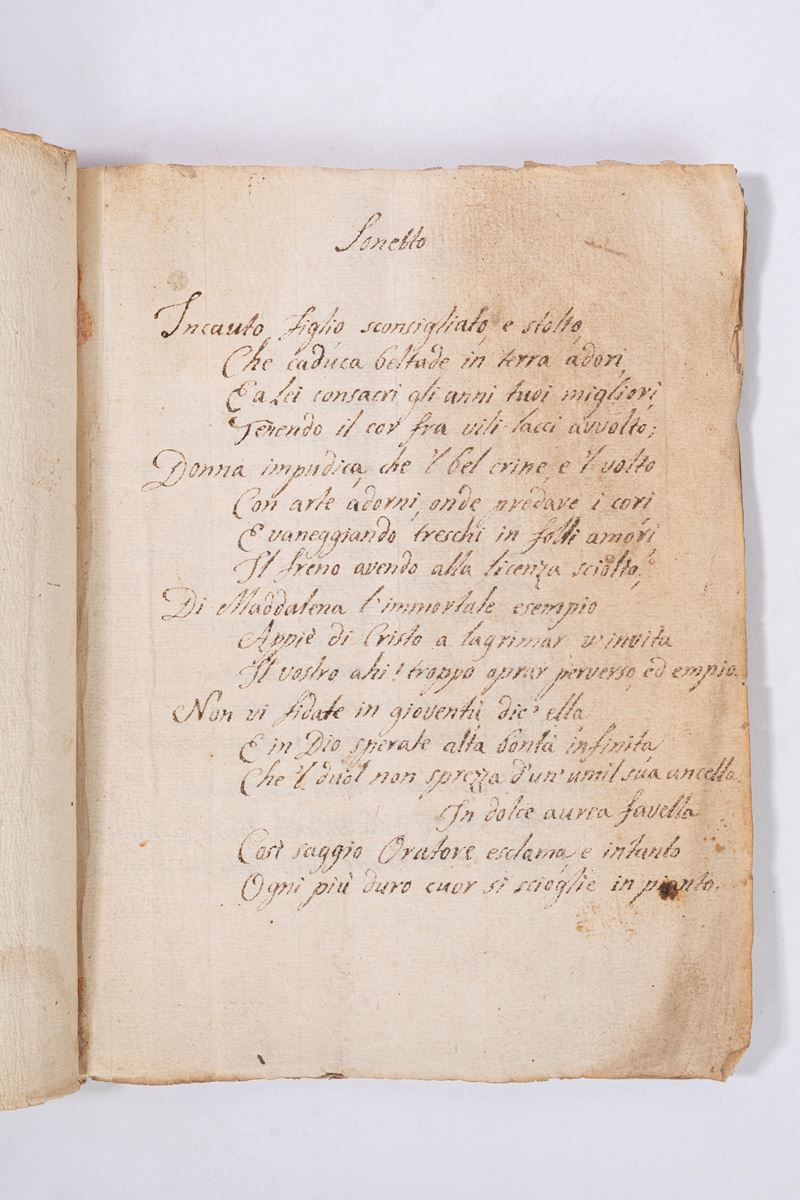 Sonetto
Incauto figlio sconsigliato, e stolto,
Che caduca beltade in terra adori,
E a Lei consacri gli anni tuoi migliori,
Tenendo il cor fra vili lacci avvolto;
Donna impudica, che 'l bel crine, e 'l volto
Con arte adorni, onde predare i cori
E vaneggiando treschi in folli amori,
Il freno avendo alla licenza sciolto,
Di Maddalena l'immortale esempio
Appiè di Cristo a lagrimar v'invita
Il vostro ahi! troppo oprar perverso, ed empio.
Non vi fidate in gioventù dic' ella
E in Dio sperate alta bontà infinita
Che 'l duol non sprezza d'un' umil sua ancella.
In dolce aurea favella
Così saggio Oratore esclama, e intanto
Ogni più duro cuor si scioglie in pianto.